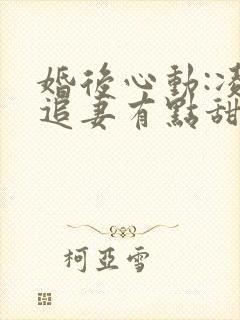 婚後心動:凌
追妻有點甜
柯亞雪